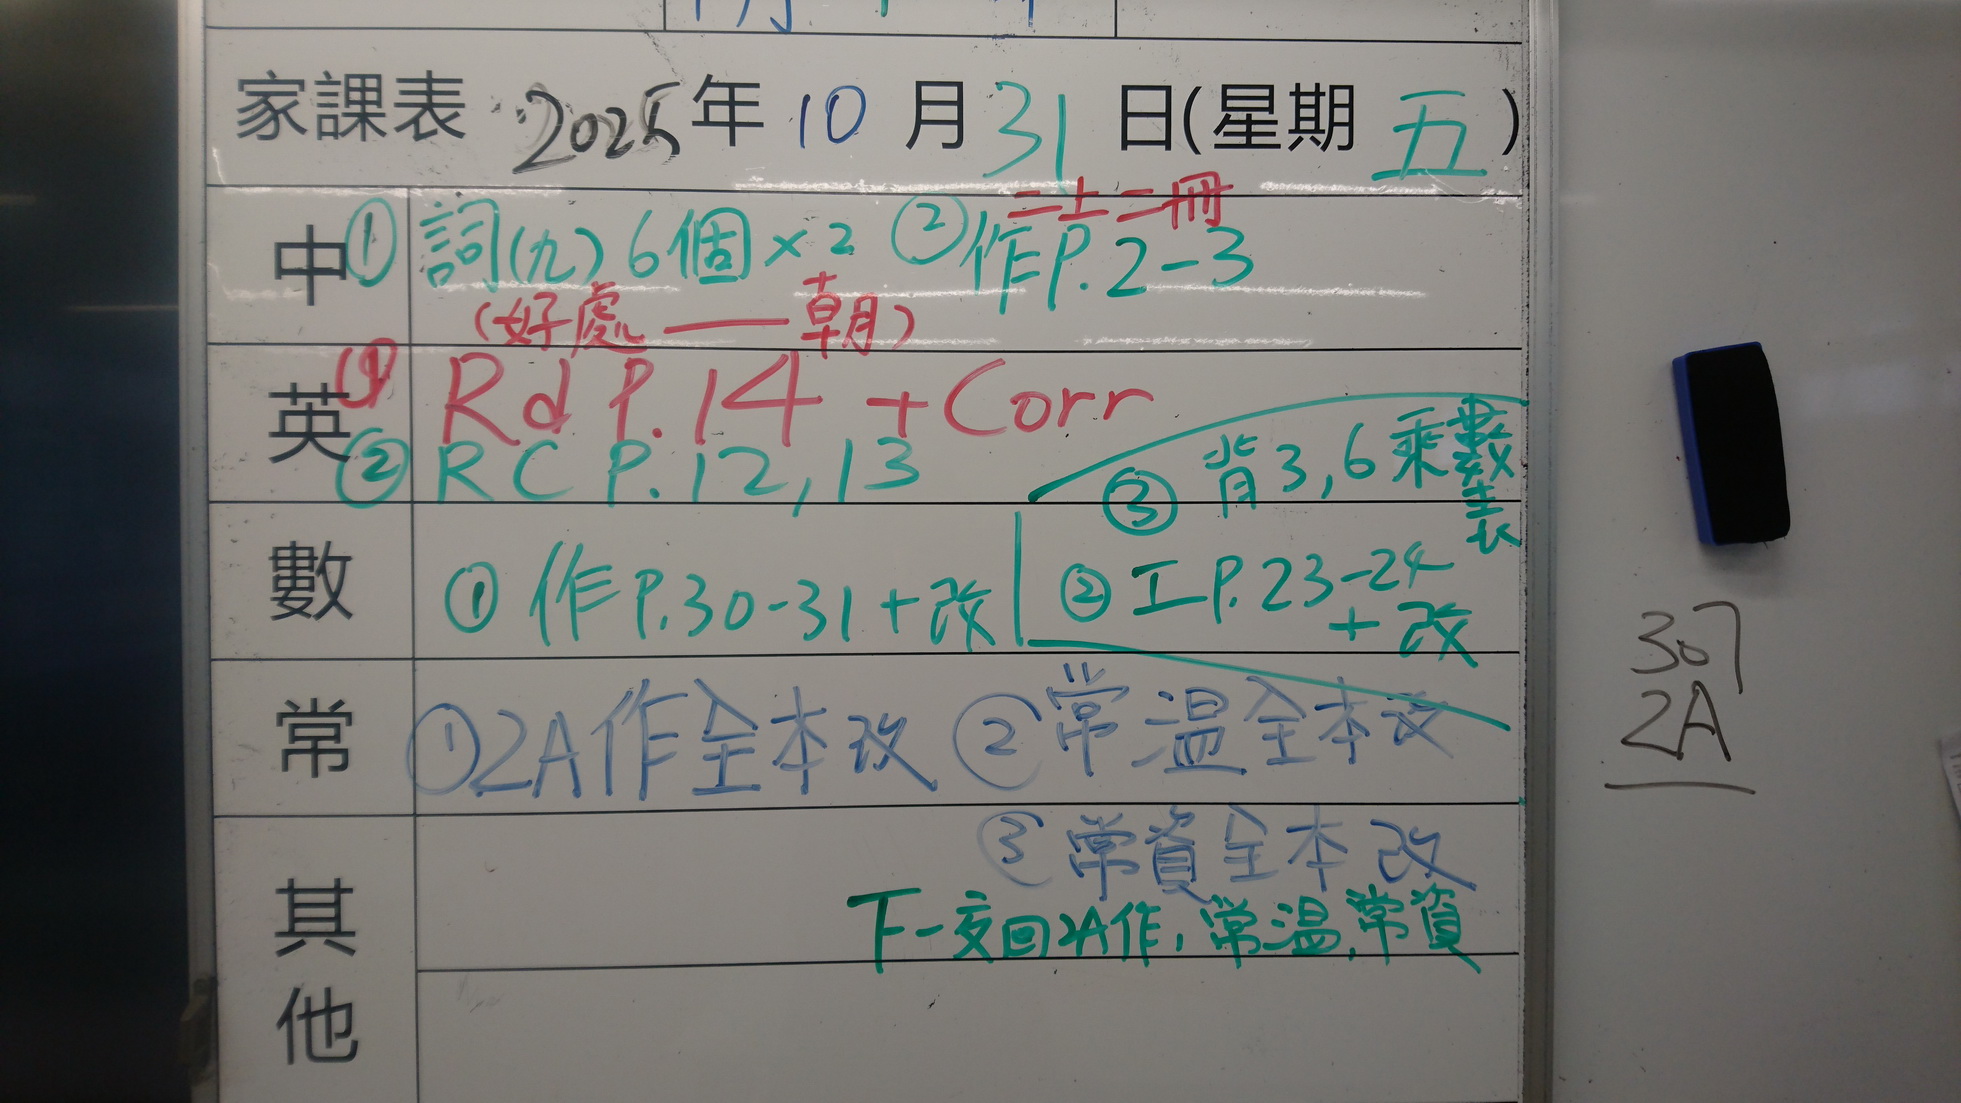 家課表 2025年 10 月 31 日(星期 五 )
中 ① 詞(九) 6個×2 ② 作P.2-3
二上二冊
(好處——朝)
英 ① Rd P.14 + Corr
② RC P.12,13
數 ① 作P.30-31+改
② 工P.23-24
+改
③ 背3,6乘數表
常 ①2A作全本改 ②常溫全本改
③常資全本改
其他
下一交回2A作,常溫,常資
307
2A